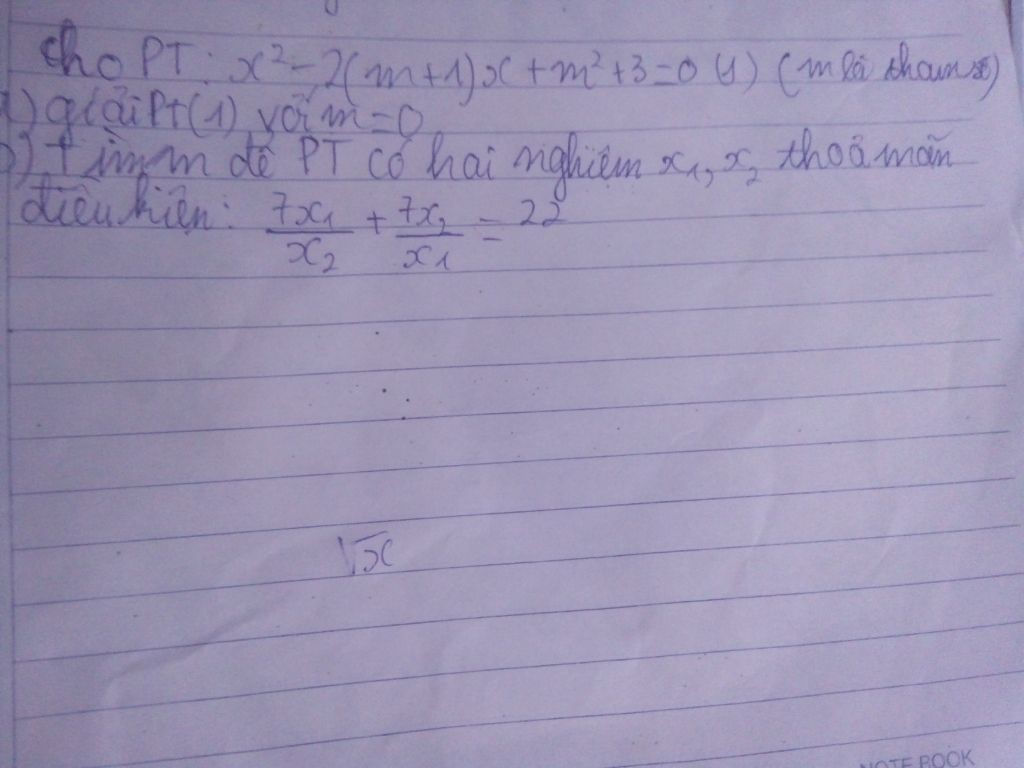 Cho PT: x² - 2(m+1)x + m² + 3 = 0 (1) (m là tham số)
a) giải Pt(1) với m = 0
b) tìm m để PT có hai nghiệm x₁, x₂ thoả mãn
điều kiện: 7x₁/x₂ + 7x₂/x₁ = 22
√x
NOTE BOOK